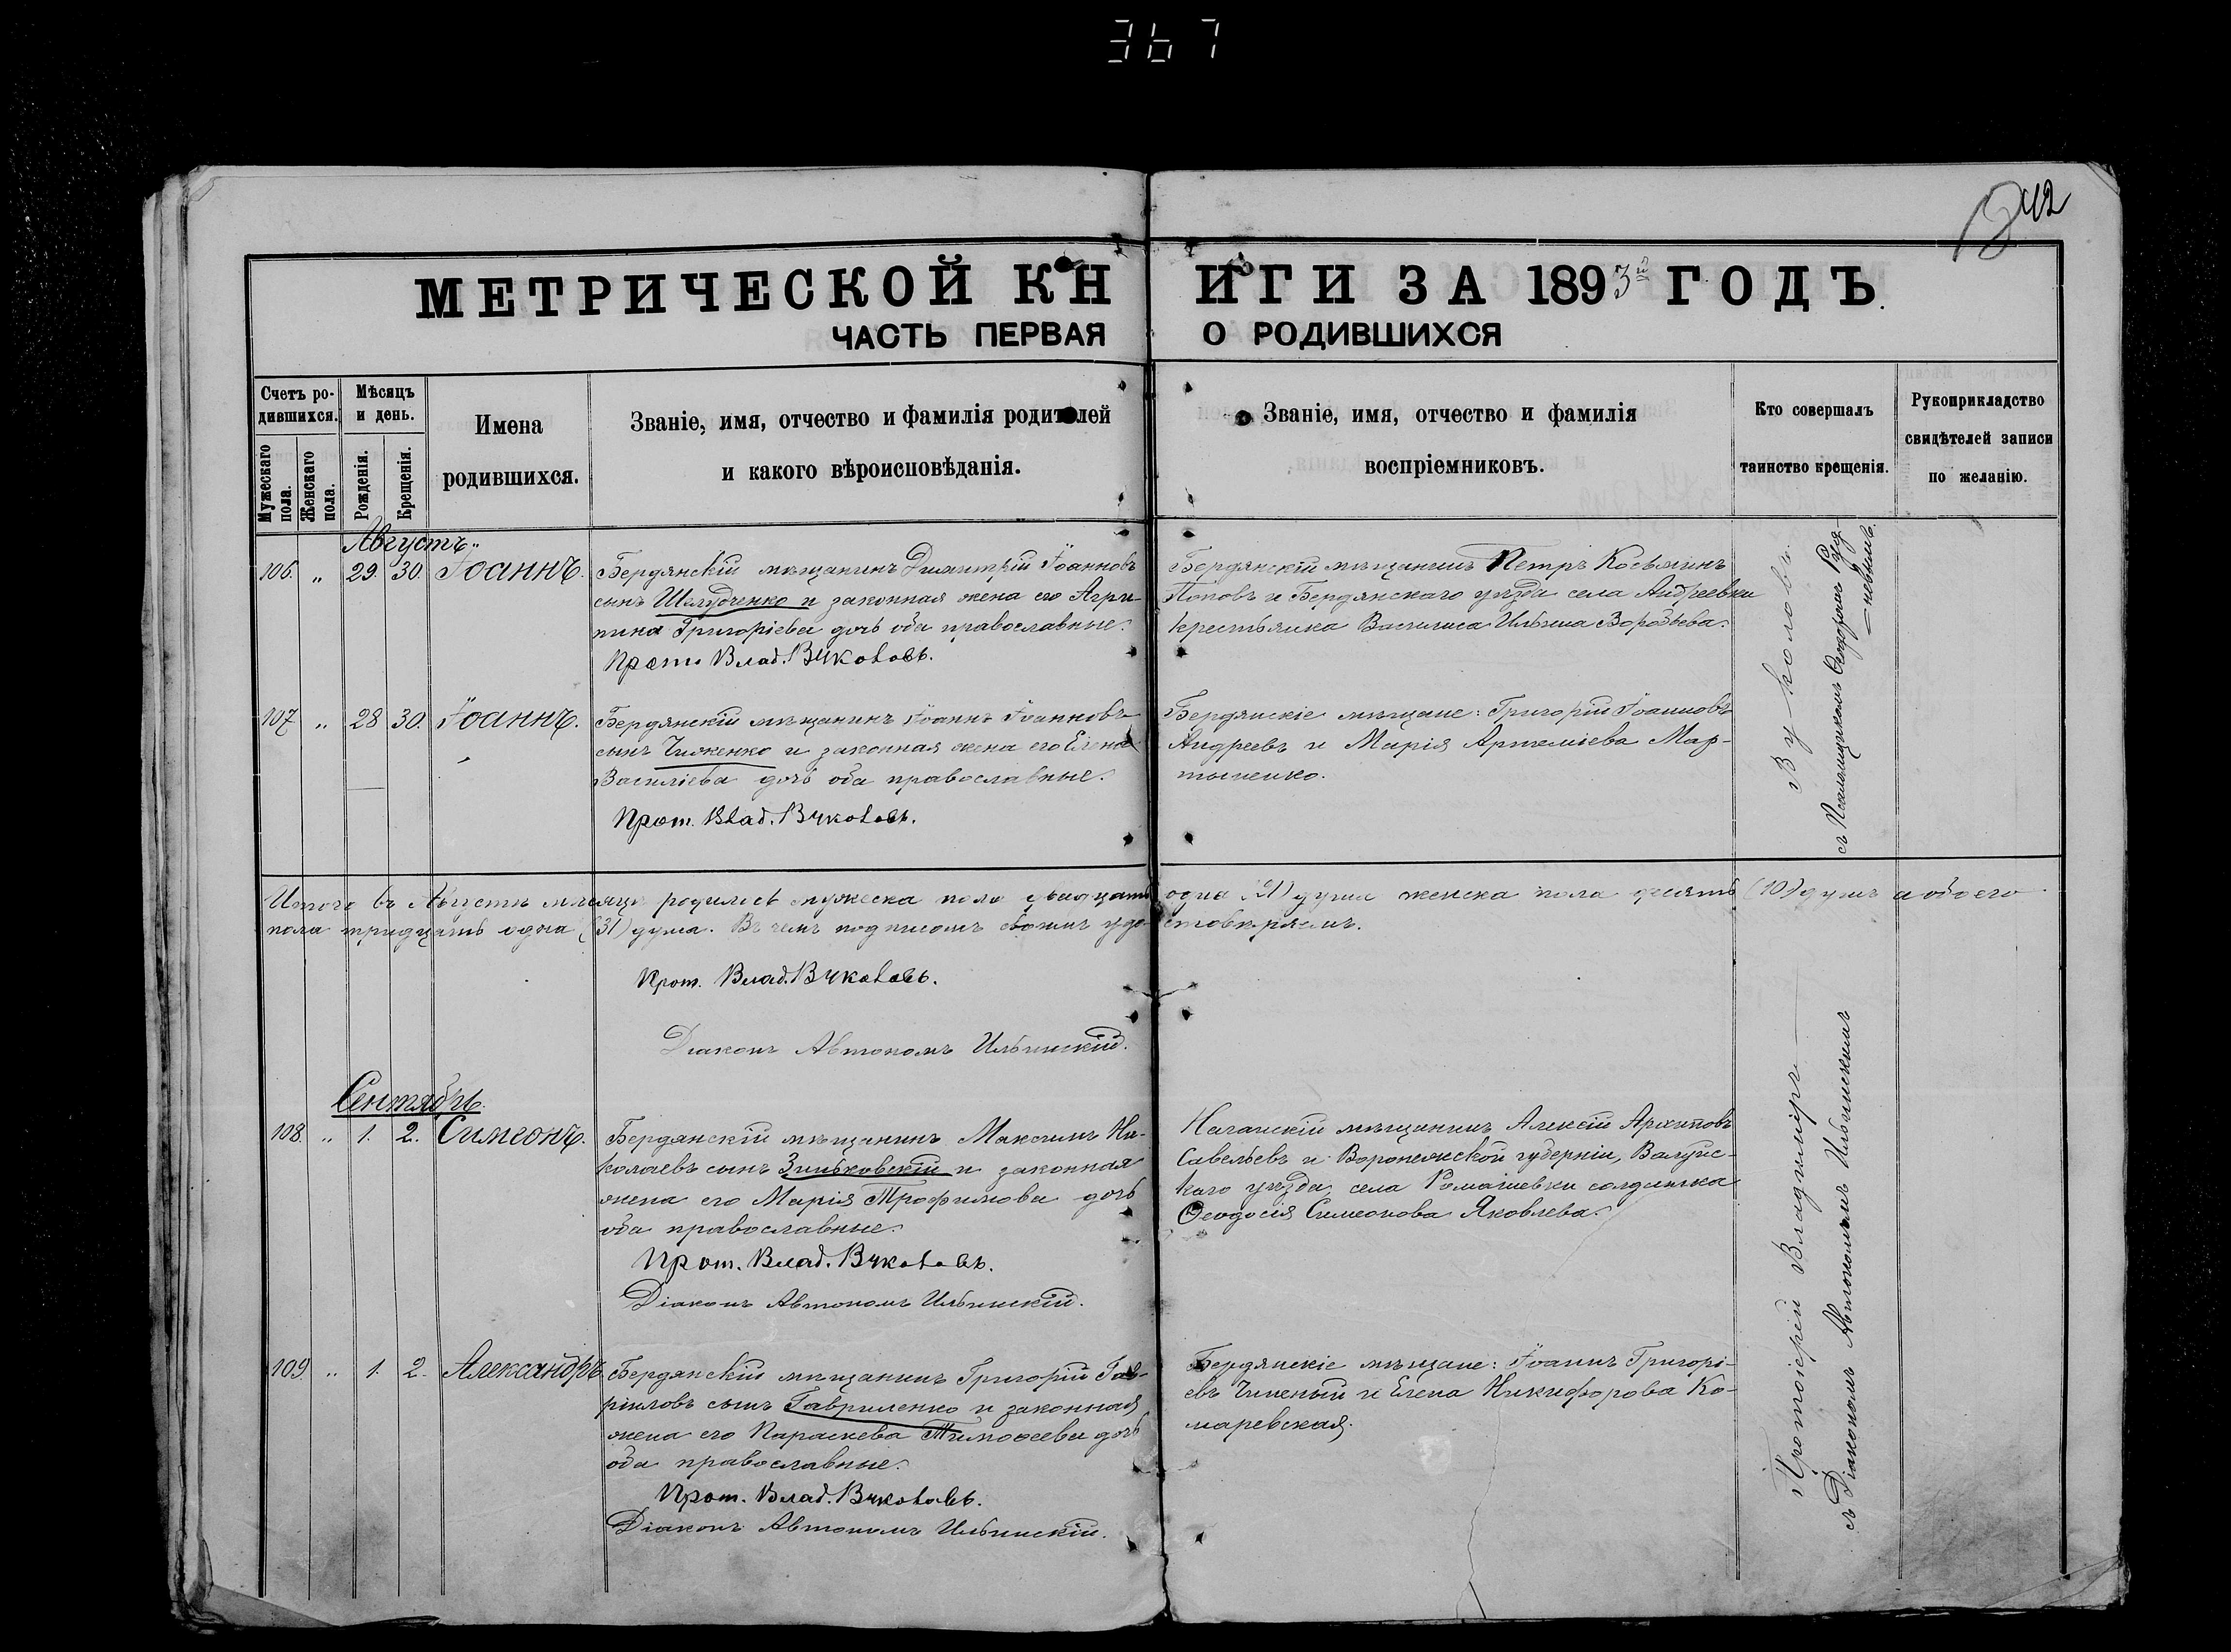 367
42
МЕТРИЧЕСКОЙ КНИГИ ЗА 1893й ГОДЪ.
ЧАСТЬ ПЕРВАЯ О РОДИВШИХСЯ
Счетъ родившихся.
Мужескаго пола.
Женскаго пола.
Мѣсяцъ и день.
Рожденія.
Крещенія.
Имена
родившихся.
Званіе, имя, отчество и фамилія родителей
и какого вѣроисповѣданія.
Званіе, имя, отчество и фамилія
воспріемниковъ.
Кто совершалъ
таинство крещенія.
Рукоприкладство
свидѣтелей записи
по желанію.
Августъ
106. " 29. 30. Іоаннъ.
Бердянскій мѣщанинъ Димитрій Іоанновъ
сынъ Шелудченко и законная жена его Агри-
пина Григоріева дочь оба православные.
Прот. Влад. Вуколовъ.
Бердянскій мѣщанинъ Петръ Косьминъ
Поповъ и Бердянскаго уѣзда села Андреевки
крестьянка Василиса Ильина Воробьева.
107 " 28 30. Іоаннъ.
Бердянскій мѣщанинъ Іоаннъ Іоанновъ
сынъ Чиженко и законная жена его Елена
Василіева дочь оба православные.
Прот. Влад. Вуколовъ.
Бердянскіе мѣщане: Григорій Іоанновъ
Андреевъ и Марія Артеміева Мар-
тыненко.
Итого въ Августѣ мѣсяцѣ родилось мужеска пола двадцать одна (21) душа женска пола десять (10) душъ а обоего
пола тридцать одна (31) душа. Въ чемъ подписомъ своимъ удостовѣряемъ.
Прот. Влад. Вуколовъ.
Діаконъ Автономъ Ильинскій.
Сентябрь.
108. " 1. 2. Симеонъ.
Бердянскій мѣщанинъ Максимъ Ни-
колаевъ сынъ Зиньковскій и законная
жена его Марія Трофимова дочь
оба православные.
Прот. Влад. Вуколовъ.
Діаконъ Автономъ Ильинскій.
Ногайскій мѣщанинъ Алексій Архиповъ
Савельевъ и Воронежской губерніи, Валуйс-
каго уѣзда, села Ромашевки солдатка
Ѳеодосія Симеонова Яковлева.
109. " 1. 2. Александръ
Бердянскій мѣщанинъ Григорій Гав-
ріиловъ сынъ Гавриленко и законная
жена его Параскева Тимоѳеева дочь
оба православные.
Прот. Влад. Вуколовъ.
Діаконъ Автономъ Ильинскій.
Бердянскіе мѣщане: Іоаннъ Григорі-
евъ и Елена Никифорова Ко-
маревская.
Протоіерей Владиміръ Вуколовъ
съ Псаломщикомъ Ѳеодоромъ Руд-
невымъ.
съ Діакономъ Автономомъ Ильинскимъ